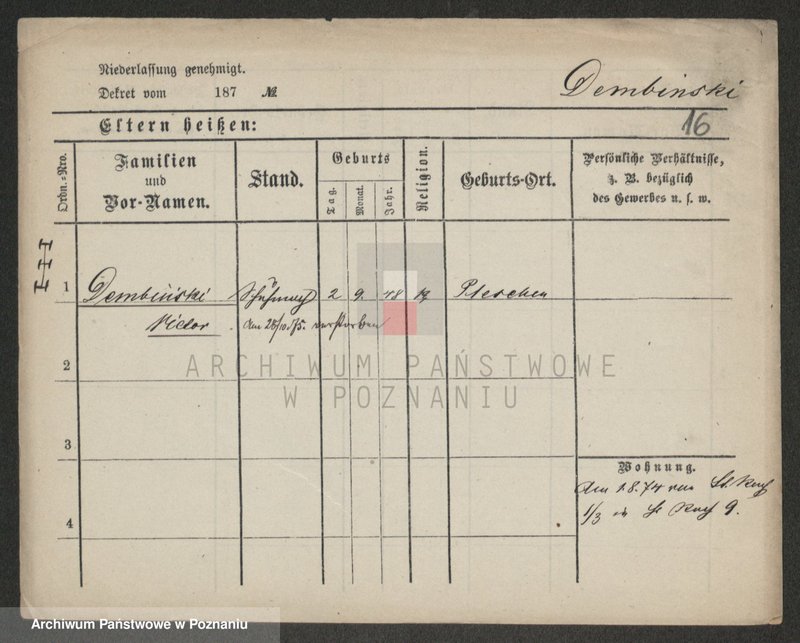 Niederlassung genehmigt.
Dekret vom 187 №
Dembinski
16
Eltern heißen:
Ordn.-Nro.
Familien
und
Vor-Namen.
Stand.
Geburts
Tag.
Monat.
Jahr.
Religion.
Geburts-Ort.
Persönliche Verhältnisse,
z. B. bezüglich
des Gewerbes u. s. w.
III
1 Dembiński 2 9 48 Pleschen
Victor am 28/10 75. verstorben
2
3
4
Wohnung.
Am 1.8.74
1/3 9.
ARCHIWUM PAŃSTWOWE
W POZNANIU
Archiwum Państwowe w Poznaniu